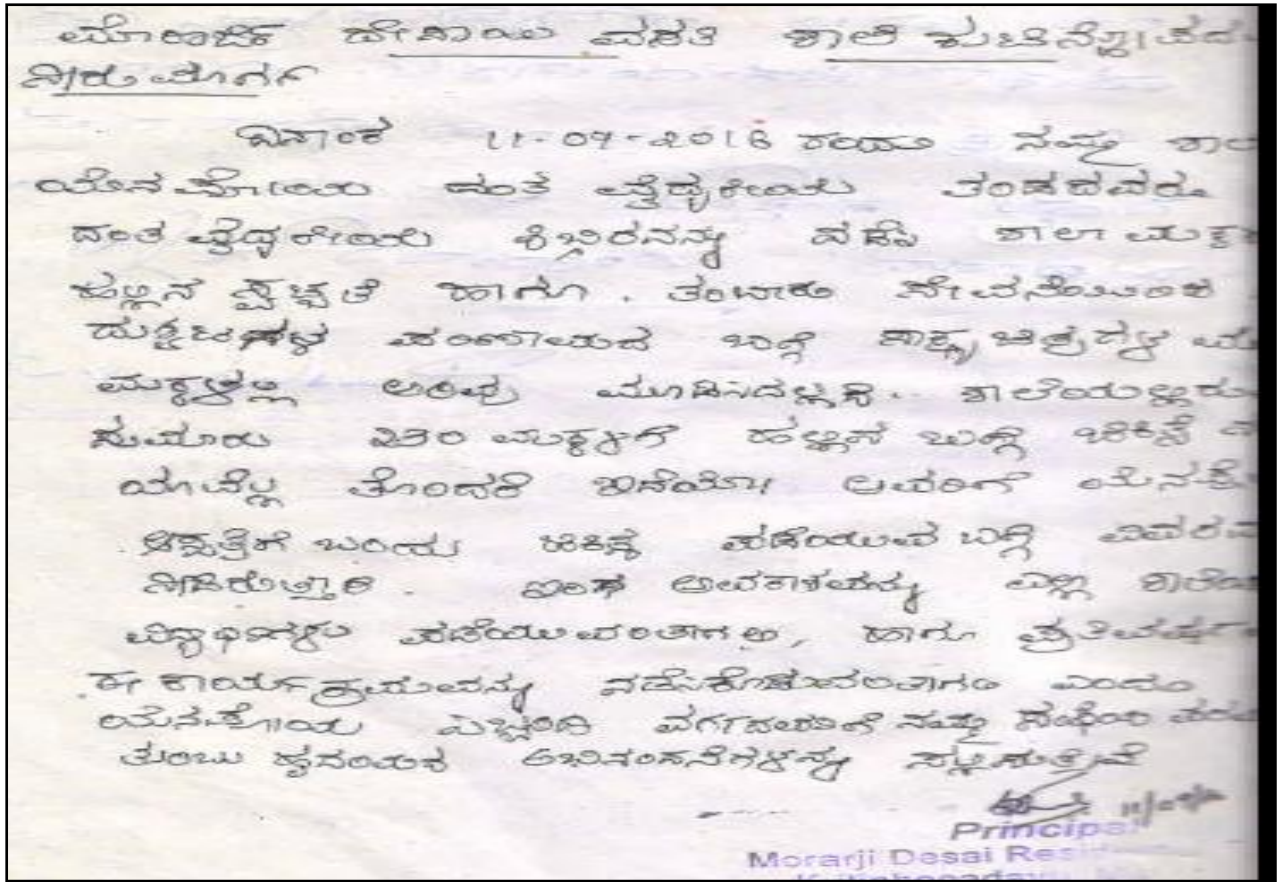 ಮೊರಾರ್ಜಿ ದೇಸಾಯಿ ವಸತಿ ಶಾಲೆ ಕುಟಿನ್ನೋಪದ
ನೀರುಮಾರ್ಗ
ದಿನಾಂಕ 11-07-2018 ರಂದು ನಮ್ಮ ಶಾಲ
ಯೆನಪೋಯ ದಂತ ವೈದ್ಯಕೀಯ ತಂಡದವರು
ದಂತ ವೈದ್ಯಕೀಯ ಶಿಬಿರವನ್ನು ನಡೆಸಿ ಶಾಲಾ ಮಕ್ಕಳ
ಹಲ್ಲಿನ ಸ್ವಚ್ಛತೆ ಹಾಗೂ. ತಂಬಾಕು ಸೇವನೆಯಿಂದ
ದುಶ್ಚಟಗಳ ಪರಿಣಾಮದ ಬಗ್ಗೆ ಸಾಕ್ಷ್ಯ ಚಿತ್ರಗಳ ಮ
ಮಕ್ಕಳಲ್ಲಿ ಅರಿವು ಮೂಡಿಸಿದಲ್ಲದೆ.. ಶಾಲೆಯಲ್ಲಿರು
ಸುಮಾರು 230 ಮಕ್ಕಳಿಗೆ ಹಲ್ಲಿನ ಬಗ್ಗೆ ಚಿಕಿತ್ಸೆ
ಯಾವೆಲ್ಲ ತೊಂದರೆ ಇದೆಯೋ ಅವರಿಗೆ ಯೆನಪೋ
ಆಸ್ಪತ್ರೆಗೆ ಬಂದು ಚಿಕಿತ್ಸೆ ಪಡೆಯುವ ಬಗ್ಗೆ ವಿವರವ
ನೀಡಿರುತ್ತಾರೆ. ಇಂತಹ ಅವಕಾಶವನ್ನು ಎಲ್ಲಾ ಶಾಲೆಯ
ವಿದ್ಯಾರ್ಥಿಗಳು ಪಡೆಯುವಂತಾಗಲಿ, ಹಾಗೂ ಪ್ರತಿವರ್ಷ
ಈ ಕಾರ್ಯಕ್ರಮವನ್ನು ನಡೆಸಿಕೊಡುವಂತಾಗಲಿ ಎಂದು
ಯೆನಪೋಯ ಸಿಬ್ಬಂದಿ ವರ್ಗದವರಿಗೆ ನಮ್ಮ ಸಂಸ್ಥೆಯ ಪರವ
ತುಂಬು ಹೃದಯದ ಅಭಿನಂದನೆಗಳನ್ನು ಸಲ್ಲಿಸುತ್ತೇವೆ
Principal
Morarji Desai Res